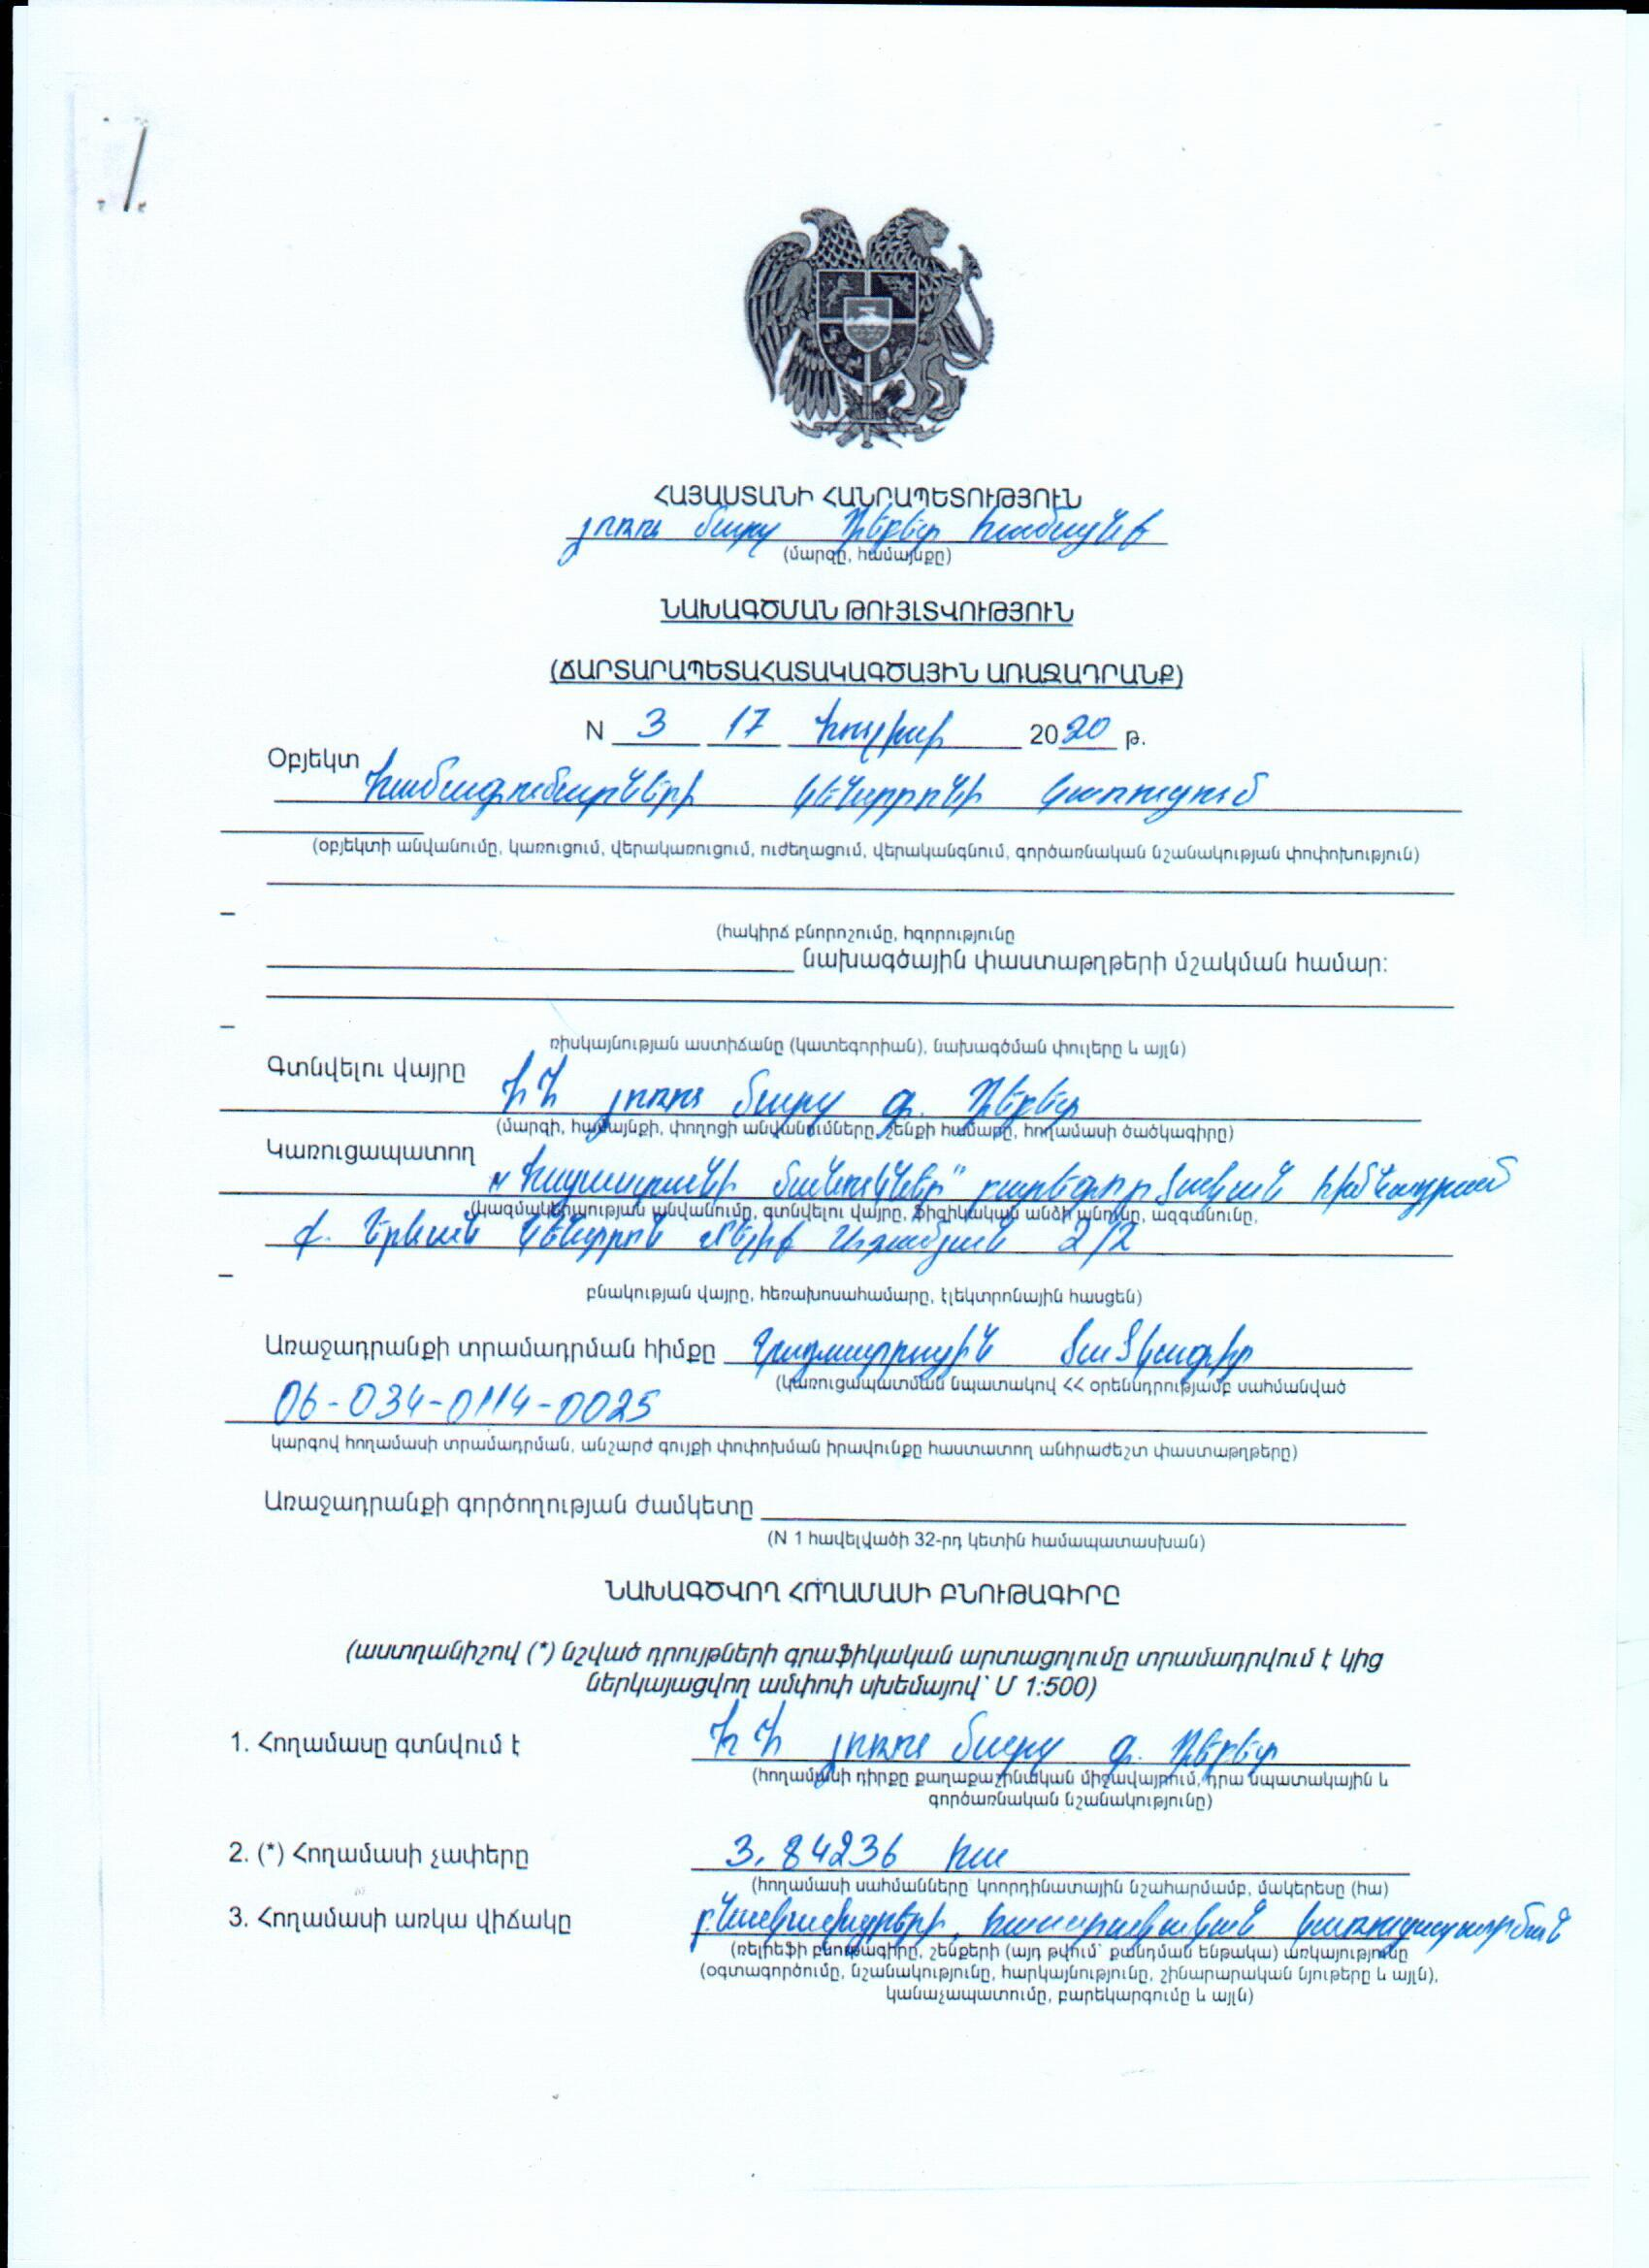 ՀԱՅԱՍՏԱՆԻ ՀԱՆՐԱՊԵՏՈՒԹՅՈՒՆ
Լոռու մարզ Դեբետ համայնք
(մարզը, համայնքը)
ՆԱԽԱԳԾՄԱՆ ԹՈՒՅԼՏՎՈՒԹՅՈՒՆ
(ՃԱՐՏԱՐԱՊԵՏԱՀԱՏԱԿԱԳԾԱՅԻՆ ԱՌԱՋԱԴՐԱՆՔ)
N 3 17 հուլիսի 2020 թ.
Օբյեկտ
համագումարների կենտրոնի կառուցում
(օբյեկտի անվանումը, կառուցում, վերակառուցում, ուժեղացում, վերականգնում, գործառնական նշանակության փոփոխություն)
(հակիրճ բնորոշումը, հզորությունը
նախագծային փաստաթղթերի մշակման համար:
ռիսկայնության աստիճանը (կատեգորիան), նախագծման փուլերը և այլն)
Գտնվելու վայրը
ՀՀ Լոռու մարզ գ. Դեբետ
(մարզի, համայնքի, փողոցի անվանումները, շենքի համարը, հողամասի ծածկագիրը)
Կառուցապատող
«Հայաստանի մանուկներ" բարեգործական հիմնադրամ
(կազմակերպության անվանումը, գտնվելու վայրը, ֆիզիկական անձի անունը, ազգանունը,
ք. Երևան Կենտրոն Մելիք Ադամյան 2/2
բնակության վայրը, հեռախոսահամարը, էլեկտրոնային հասցեն)
Առաջադրանքի տրամադրման հիմքը Կադաստրային ծածկագիր
(կառուցապատման նպատակով ՀՀ օրենսդրությամբ սահմանված
06-034-0114-0025
կարգով հողամասի տրամադրման, անշարժ գույքի փոփոխման իրավունքը հաստատող անհրաժեշտ փաստաթղթերը)
Առաջադրանքի գործողության ժամկետը
(N 1 հավելվածի 32-րդ կետին համապատասխան)
ՆԱԽԱԳԾՎՈՂ ՀՈՂԱՄԱՍԻ ԲՆՈՒԹԱԳԻՐԸ
(աստղանիշով (*) նշված դրույթների գրաֆիկական արտացոլումը տրամադրվում է կից
ներկայացվող ամփոփ սխեմայով՝ Մ 1:500)
1. Հողամասը գտնվում է ՀՀ Լոռու մարզ գ. Դեբետ
(հողամասի դիրքը քաղաքաշինական միջավայրում, դրա նպատակային և
գործառնական նշանակությունը)
2. (*) Հողամասի չափերը 3,84236 հա
(հողամասի սահմանները կոորդինատային նշահարմամբ, մակերեսը (հա)
3. Հողամասի առկա վիճակը բնակավայրերի, հասարակական կառուցապատման
(ռելիեֆի բնութագիրը, շենքերի (այդ թվում՝ քանդման ենթակա) առկայությունը
(օգտագործումը, նշանակությունը, հարկայնությունը, շինարարական նյութերը և այլն),
կանաչապատումը, բարեկարգումը և այլն)